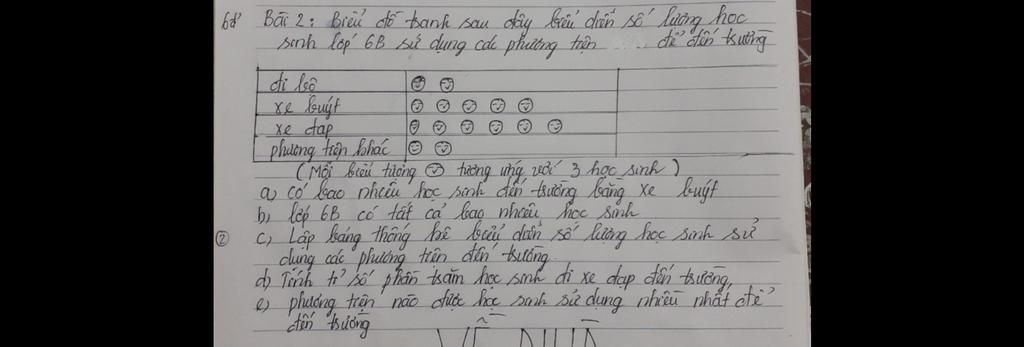 Bài 2: Biểu đồ tranh sau đây biểu diễn số lượng học
sinh lớp 6B sử dụng các phương tiện để đến trường
đi bộ
xe buýt
xe đạp
phương tiện khác
(Mỗi biểu tượng tương ứng với 3 học sinh)
a) có bao nhiêu học sinh đến trường bằng xe buýt
b) lớp 6B có tất cả bao nhiêu học sinh
② c) Lập bảng thống kê biểu diễn số lượng học sinh sử
dụng các phương tiện đến trường
d) Tính tỉ số phần trăm học sinh đi xe đạp đến trường
e) phương tiện nào được học sinh sử dụng nhiều nhất để
đến trường